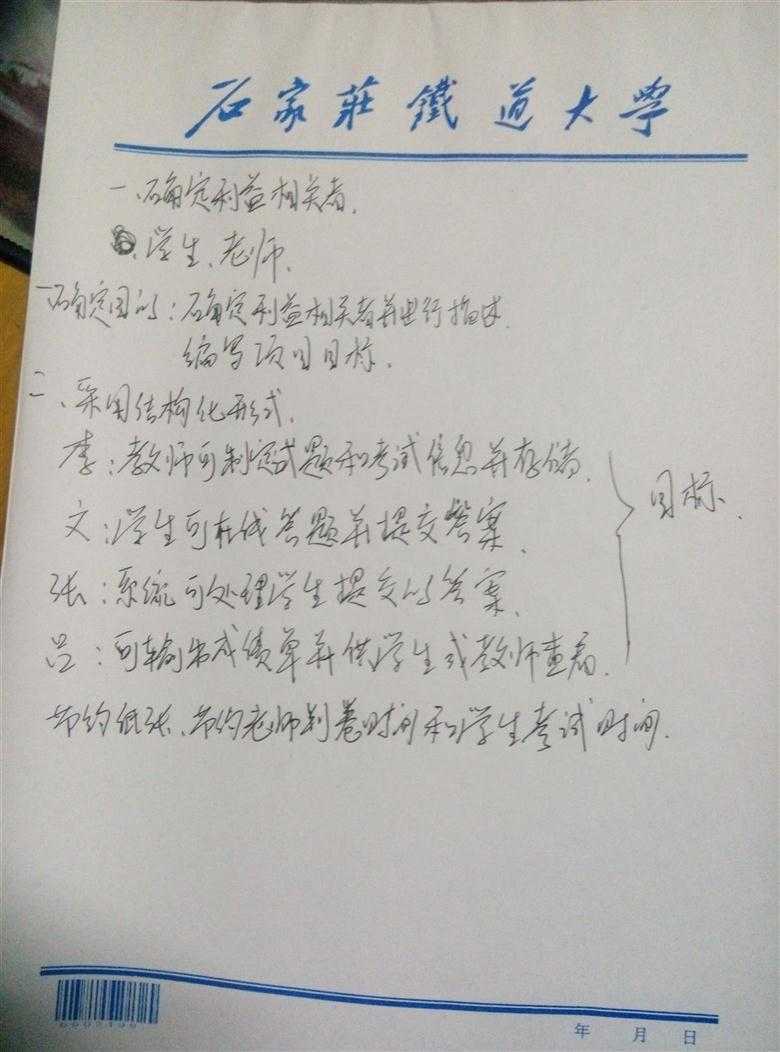 石家莊鐵道大學
一、确定利益相关者.
学生、老师.
一确定目的：确定利益相关者并进行描述.
编写项目目标.
二、采用结构化形式.
李：教师可制定试题和考试信息并存储.
目标.
文：学生可在线答题并提交答案.
张：系统可处理学生提交的答案.
吕：可输出成绩单并供学生或教师查看.
节约纸张、节约老师判卷时间和学生考试时间.
年 月 日